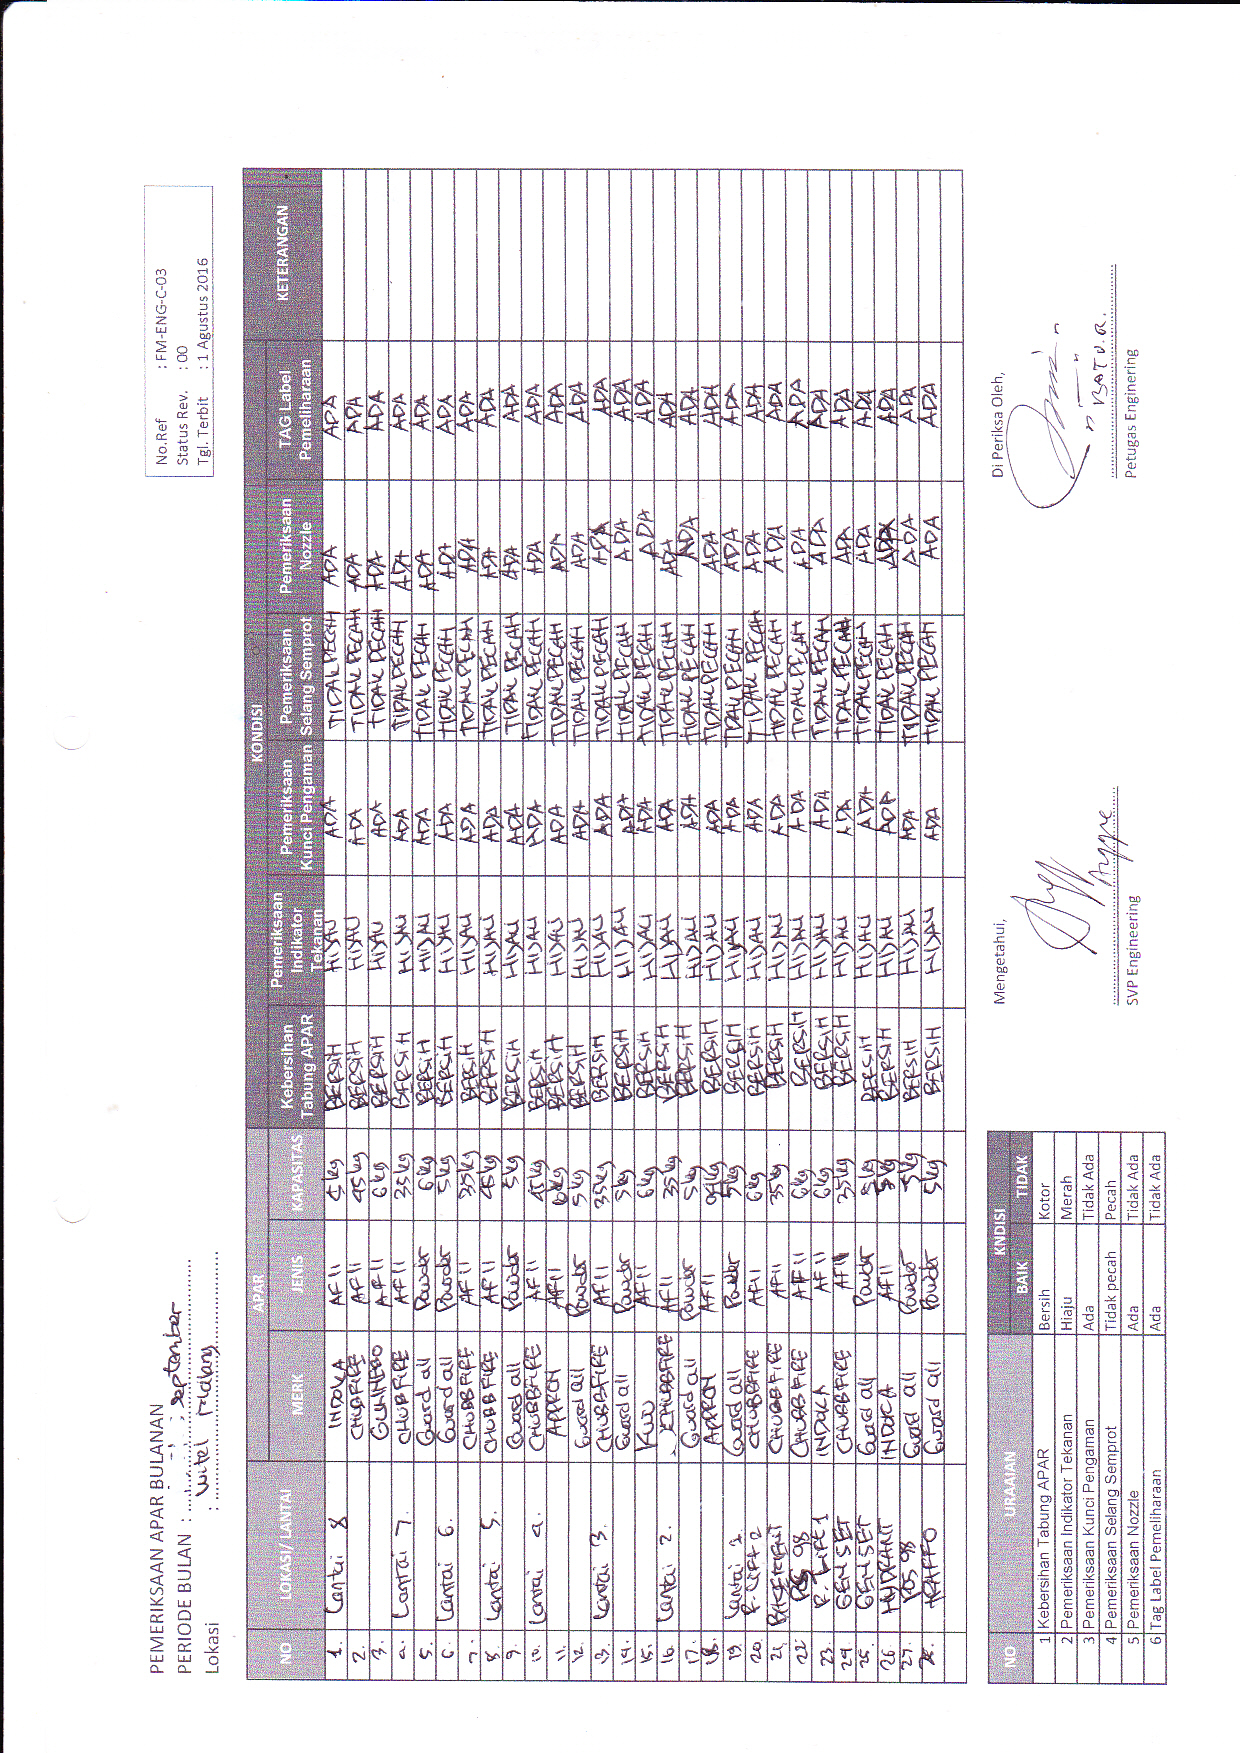 PEMERIKSAAN APAR BULANAN
PERIODE BULAN : September
Lokasi : Witel Malang
No.Ref : FM-ENG-C-03
Status Rev. : 00
Tgl. Terbit : 1 Agustus 2016
APAR KONDISI
NO LOKASI/ LANTAI MERK JENIS KAPASITAS Kebersihan Tabung APAR Pemeriksaan Indikator Tekanan Pemeriksaan Kunci Pengaman Pemeriksaan Selang Semprot Pemeriksaan Nozzle TAG Label Pemeliharaan KETERANGAN
1. Lantai 8 INDOKA AF11 5kg BERSIH HIJAU ADA TIDAK PECAH ADA ADA
2. CHUBBFIRE AF11 45kg BERSIH HIJAU ADA TIDAK PECAH ADA ADA
3. AF11 6kg BERSIH HIJAU ADA TIDAK PECAH ADA ADA
4. Lantai 7. CHUBFIRE AF11 35kg BERSIH HIJAU ADA TIDAK PECAH ADA ADA
5. Guard all Powder 6kg BERSIH HIJAU ADA TIDAK PECAH ADA ADA
6. Lantai 6. Guard all Powder 5kg BERSIH HIJAU ADA TIDAK PECAH ADA ADA
7. CHUBBFIRE AF11 35kg BERSIH HIJAU ADA TIDAK PECAH ADA ADA
8. Lantai 5. CHUBBFIRE AF11 45kg BERSIH HIJAU ADA TIDAK PECAH ADA ADA
9. Guard all Powder 5kg BERSIH HIJAU ADA TIDAK PECAH ADA ADA
10. Lantai 4. CHUBBFIRE AF11 45kg BERSIH HIJAU ADA TIDAK PECAH ADA ADA
11. APPRON AF11 6kg BERSIH HIJAU ADA TIDAK PECAH ADA ADA
12. Guard all Powder 5kg BERSIH HIJAU ADA TIDAK PECAH ADA ADA
13. Lantai 3. CHUBBFIRE AF11 35kg BERSIH HIJAU ADA TIDAK PECAH ADA ADA
14. Guard all Powder 5kg BERSIH HIJAU ADA TIDAK PECAH ADA ADA
15. AF11 6kg BERSIH HIJAU ADA TIDAK PECAH ADA ADA
16. Lantai 2. CHUBBFIRE AF11 35kg BERSIH HIJAU ADA TIDAK PECAH ADA ADA
17. Guard all Powder 5kg BERSIH HIJAU ADA TIDAK PECAH ADA ADA
18. APPRON AF11 BERSIH HIJAU ADA TIDAK PECAH ADA ADA
19 Lantai 1. Guard all Powder 5kg BERSIH HIJAU ADA TIDAK PECAH ADA ADA
20. R. LIFT 2 CHUBBFIRE AF11 6kg BERSIH HIJAU ADA TIDAK PECAH ADA ADA
21. BASEMENT CHUBBFIRE AF11 35kg BERSIH HIJAU ADA TIDAK PECAH ADA ADA
22 POS 98 CHUBBFIRE AF11 6kg BERSIH HIJAU ADA TIDAK PECAH ADA ADA
23. R. LIFE 1 INDOKA AF11 6kg BERSIH HIJAU ADA TIDAK PECAH ADA ADA
24. GENSET CHUBBFIRE AF11 35kg BERSIH HIJAU ADA TIDAK PECAH ADA ADA
25. GENSET Guard all Powder 5kg BERSIH HIJAU ADA TIDAK PECAH ADA ADA
26. HYDRANT INDOKA AF11 5kg BERSIH HIJAU ADA TIDAK PECAH ADA ADA
27. POS 98 Guard all Powder 5kg BERSIH HIJAU ADA TIDAK PECAH ADA ADA
28. TRAFFO Guard all Powder 5kg BERSIH HIJAU ADA TIDAK PECAH ADA ADA
NO URAAIAN KNDISI
BAIK TIDAK
1 Kebersihan Tabung APAR Bersih Kotor
2 Pemeriksaan Indikator Tekanan Hiaju Merah
3 Pemeriksaan Kunci Pengaman Ada Tidak Ada
4 Pemeriksaan Selang Semprot Tidak pecah Pecah
5 Pemeriksaan Nozzle Ada Tidak Ada
6 Tag Label Pemeliharaan Ada Tidak Ada
Mengetahui,
SVP Engineering
Di Periksa Oleh,
Petugas Enginering